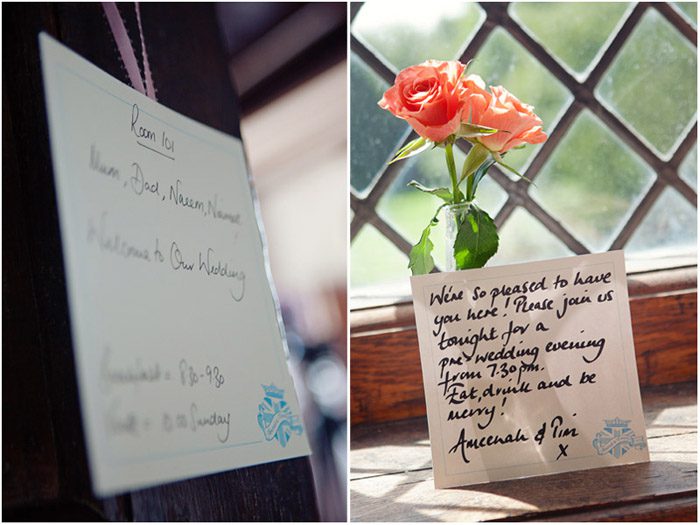 Room 101
Mum, Dad, Naeem,
Welcome to Our Wedding
Breakfast = 8.30-9.30
Sunday
We're so pleased to have
you here! Please join us
tonight for a
pre-wedding evening
from 7.30pm.
Eat, drink and be
merry!
Ameenah & Pini
x